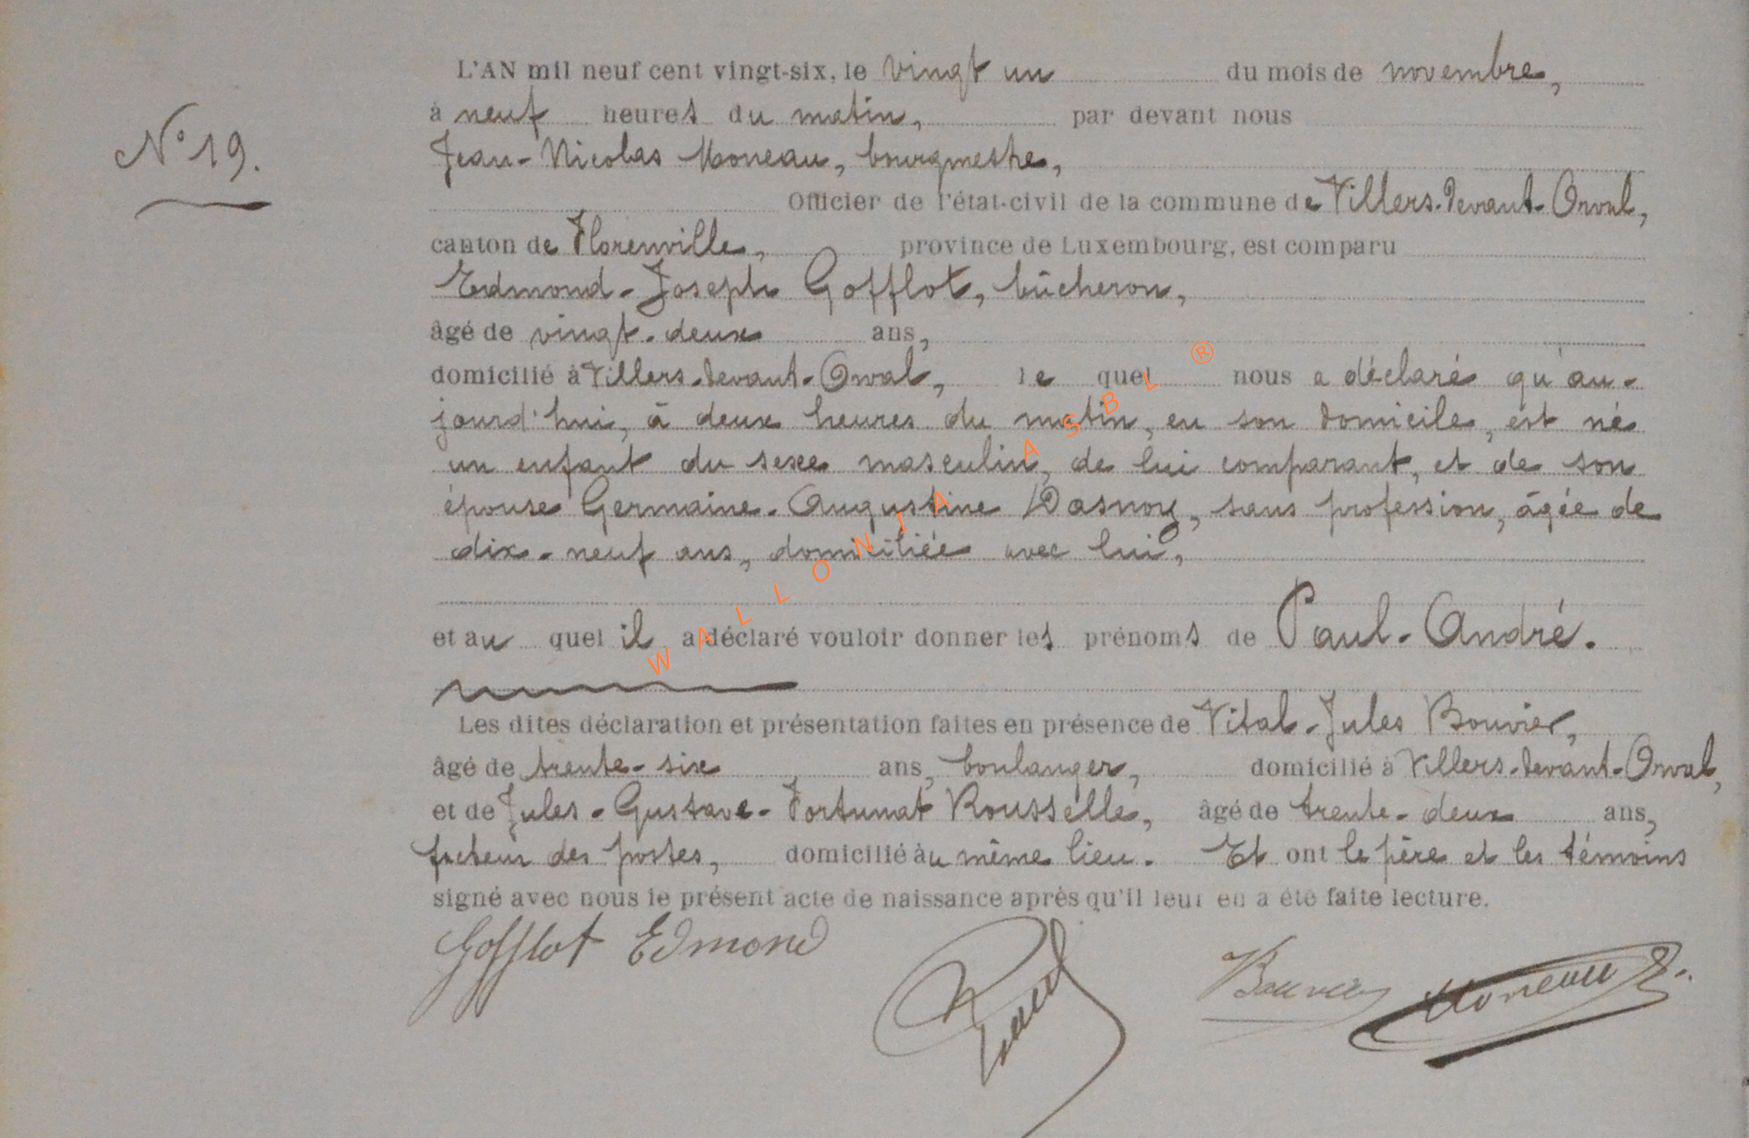 N° 19.
L'AN mil neuf cent vingt-six, le vingt un du mois de novembre,
à neuf heures du matin, par devant nous
Jean-Nicolas Moneau, bourgmestre,
Officier de l'état-civil de la commune de Villers-devant-Orval,
canton de Florenville, province de Luxembourg, est comparu
Edmond-Joseph Gofflot, bûcheron,
âgé de vingt-deux ans,
domicilié à Villers-devant-Orval, le quel nous a déclaré qu'au-
jourd'hui, à deux heures du matin, en son domicile, est né
un enfant du sexe masculin, de lui comparant, et de son
épouse Germaine-Augustine Dasnoy, sans profession, âgée de
dix-neuf ans, domiciliée avec lui,
et au quel il a déclaré vouloir donner les prénoms de Paul-André.
Les dites déclaration et présentation faites en présence de Vital-Jules Bouvier,
âgé de trente-six ans, boulanger, domicilié à Villers-devant-Orval,
et de Jules-Gustave-Fortunat Rousselle, âgé de trente-deux ans,
facteur des postes, domicilié au même lieu. Et ont le père et les témoins
signé avec nous le présent acte de naissance après qu'il leur en a été faite lecture.
Gofflot Edmond Bouvier Moneau
WALLONIA ASBL ®